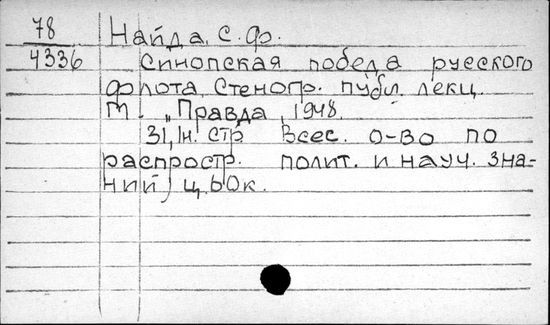 78 Найда, С. Ф.
4336 Синопская победа русского
флота. Стеногр. публ. лекц.
М. „Правда", 1948.
31, 1н. стр. Всес. о-во по
распростр. полит. и науч. зна-
ний) ц. 60к.